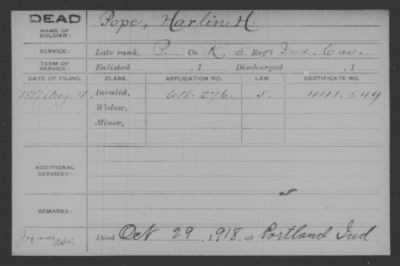 DEAD
NAME OF SOLDIER: Pope, Harlin H.
SERVICE: Late rank, P. Co. K, 6 Reg't Ind. Cav.
TERM OF SERVICE: Enlisted , 1 Discharged , 1
DATE OF FILING. CLASS. APPLICATION NO. LAW. CERTIFICATE NO.
1887 Aug. Invalid, 618.276. J. 441.549
Widow,
Minor,
ADDITIONAL SERVICES:
REMARKS:
Died Oct 29, 1918, at Portland Ind